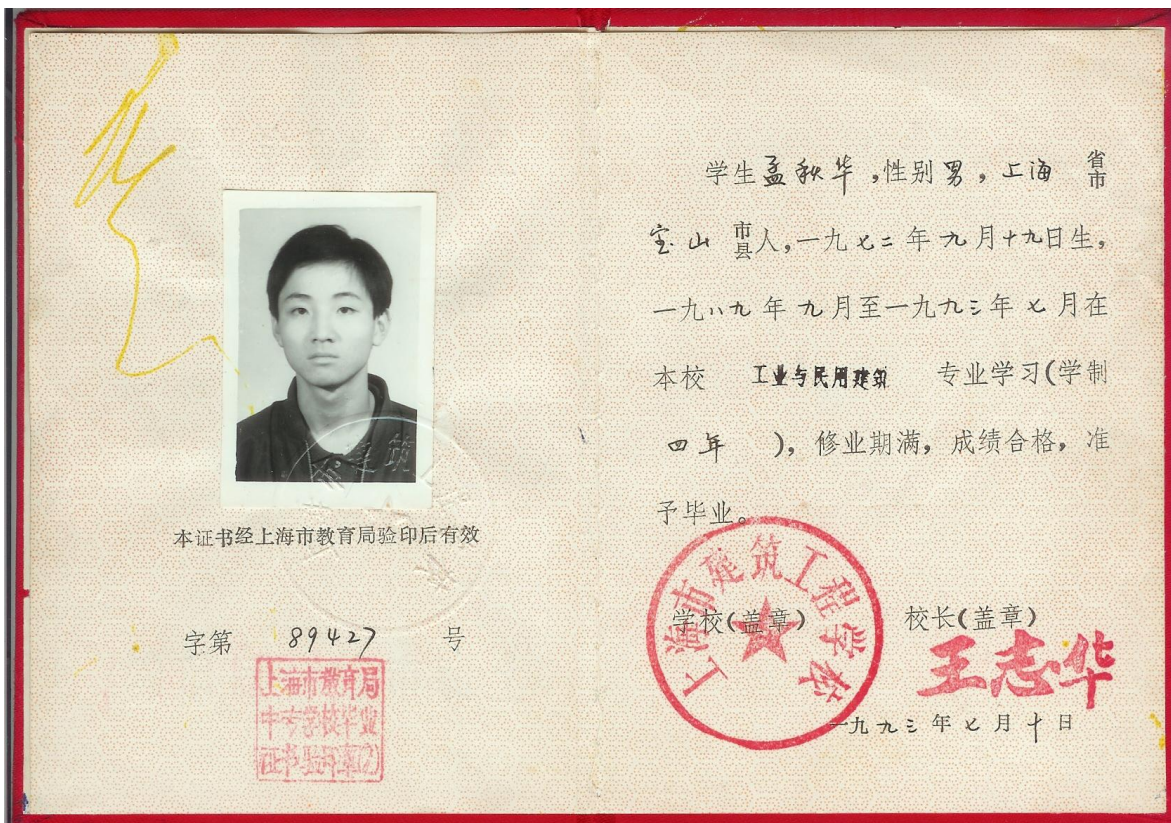 本证书经上海市教育局验印后有效
字第 89427 号
上海市教育局
中专学校毕业
证书验印章(2)
学生孟秋华,性别男,上海省市
宝山市县人,一九七二年九月十九日生,
一九八九年九月至一九九三年七月在
本校 工业与民用建筑 专业学习(学制
四年 ),修业期满,成绩合格,准
予毕业。
上海市建筑工程学校
学校(盖章) 校长(盖章)
王志华
一九九三年七月十日